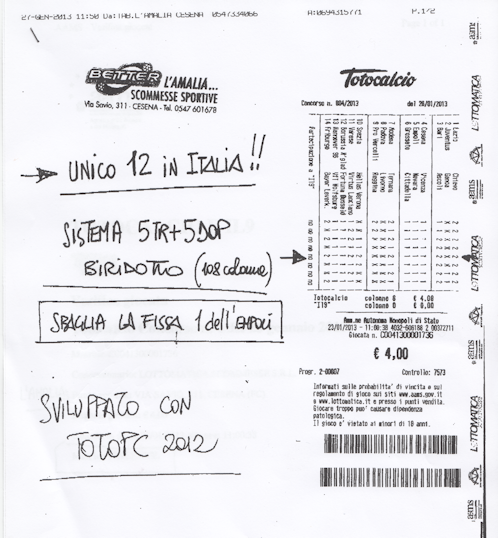 27-GEN-2013 11:50 Da:TAB.L'AMALIA CESENA 0547334066 A:0694315771 P.1/2
BETTER L'AMALIA...
SCOMMESSE SPORTIVE
Via Savio, 311 - CESENA - Tel. 0547 601678
UNICO 12 IN ITALIA!!
SISTEMA 5TR+5DOP
BIRIDOTTO (108 colonne)
SBAGLIA LA FISSA 1 dell'EMPOLI
SVILUPPATO CON
TOTOPC 2012
Totocalcio
Concorso n. 004/2013 del 26/01/2013
Partecipazione a "I19"
1 Lazio Chievo
2 Juventus Genoa
3 Bari Ascoli
4 Cesena Vicenza
5 Empoli Novara
6 Grosseto Cittadella
7 Modena Ternana
8 Padova Livorno
9 Pro Vercelli Reggina
10 Spezia Hellas Verona
11 Varese Virtus Lanciano
13 Hannover 96 Vfl Wolfsburg
14 Friburgo
Totocalcio colonne 8 € 4,00
"I19" colonne 0 € 0,00
Amm.ne Autonoma Monopoli di Stato
Giocata n. C0041300001736
€ 4,00
Progr. 2-00007 Controllo: 7573
Informati sulle probabilita' di vincita e sul
regolamento di gioco sui siti www.aams.gov.it
e www.lottomatica.it e presso i punti vendita.
Giocare troppo puo' causare dipendenza
patologica.
Il gioco e' vietato ai minori di 18 anni.
aams
LOTTOMATICA
aams
LOTTOMATICA
aams
LOTTOMATICA
aams